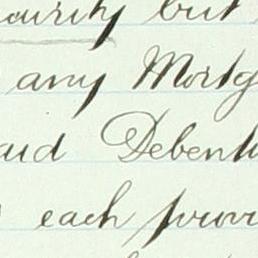 but
any Mortg
aid Debent
each provi